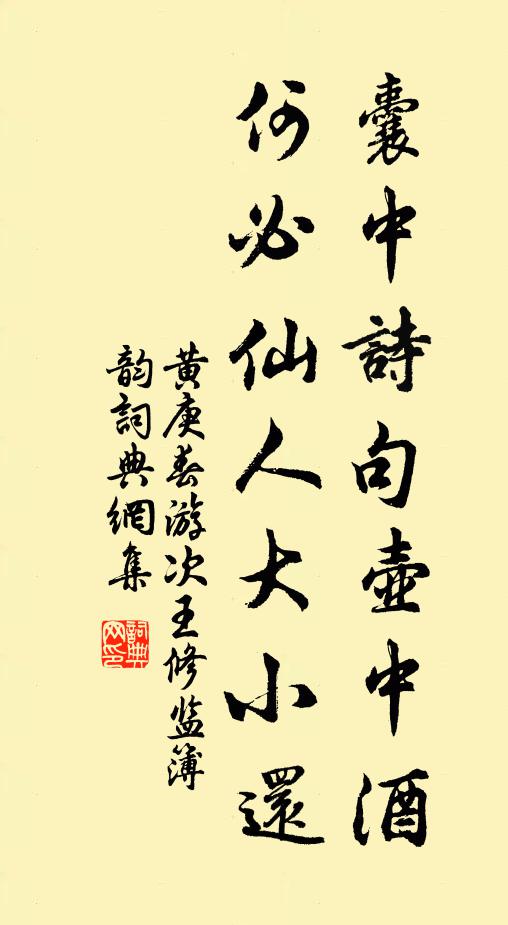 囊中詩句壺中酒
何必仙人大小還
黃庚春游次王修监簿
韵詞典網集
詞典網印